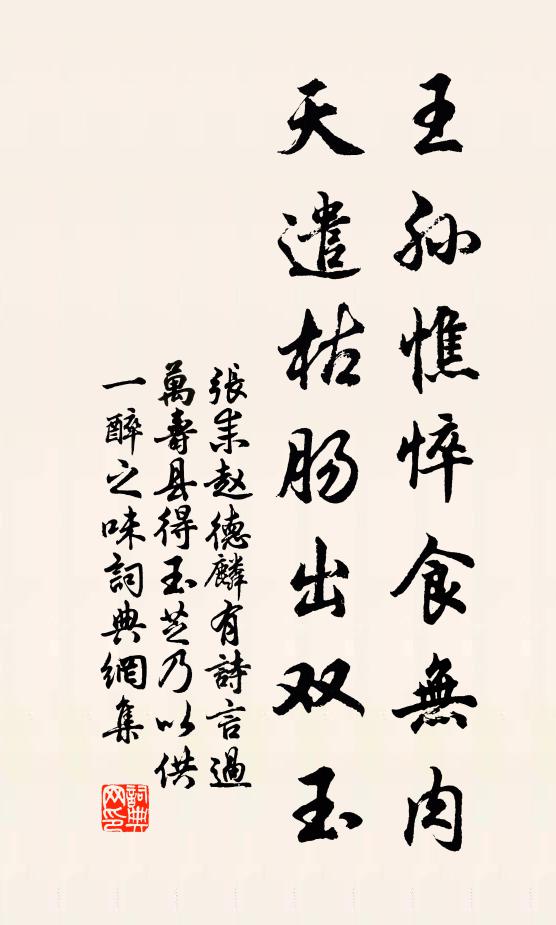 王孙憔悴食無肉
天遣枯肠出双玉
張耒赵德麟有詩言過
萬壽县得玉芝乃以供
一醉之味詞典網集
詞典网印